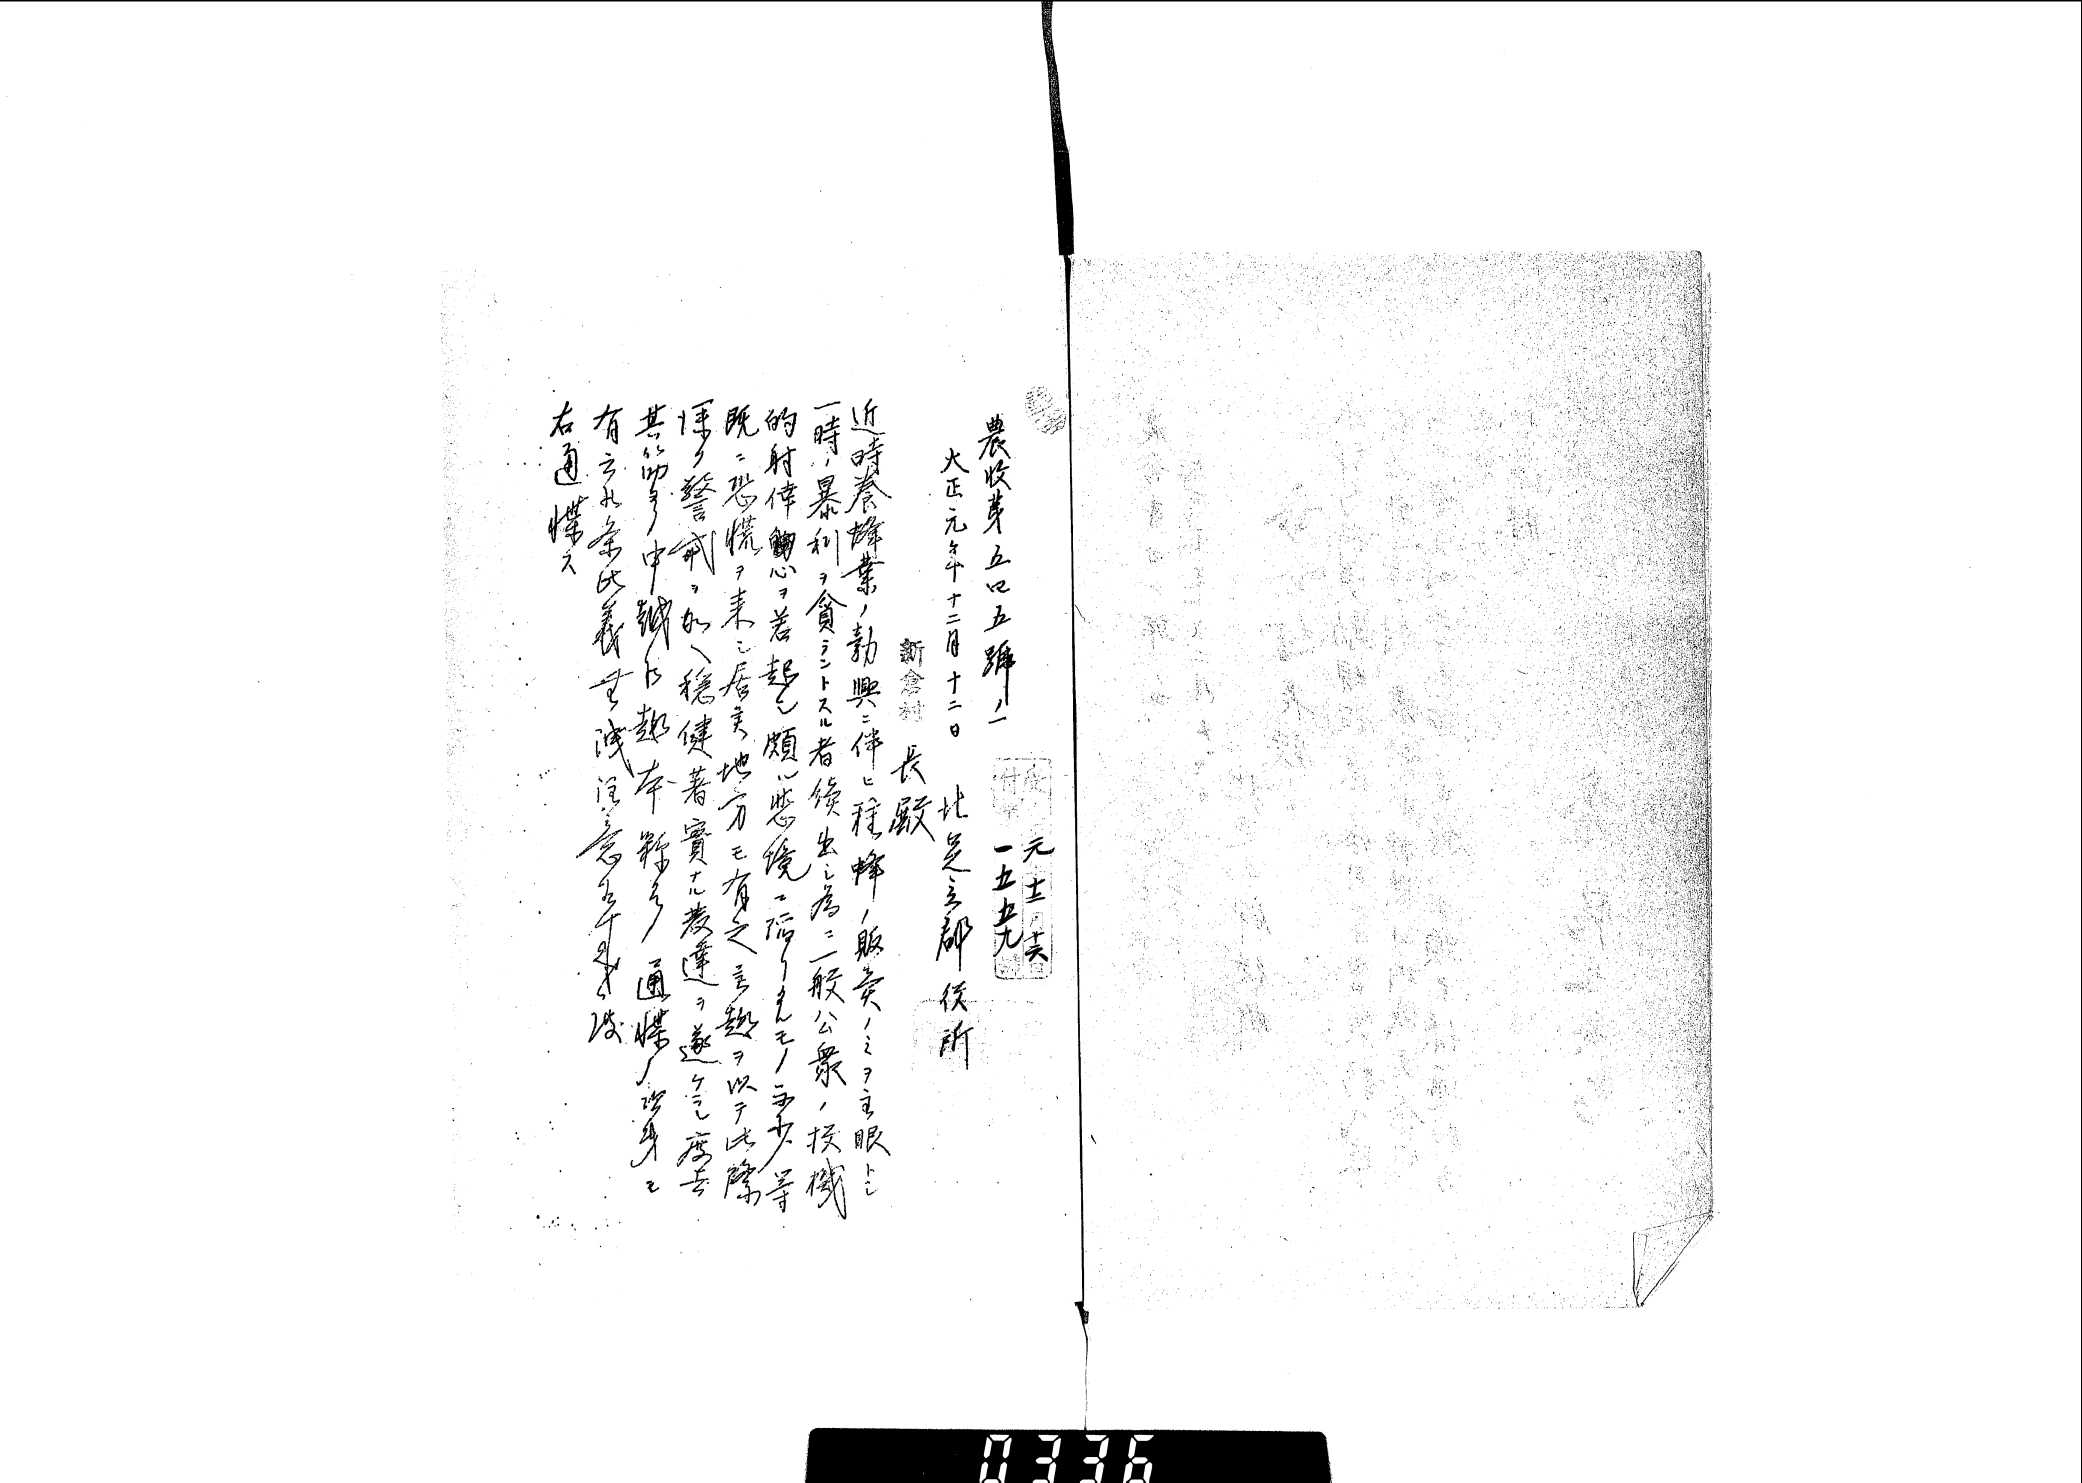 農收第五四五號ノ一
元 十二 十六
一五五九
大正元年十二月十二日 北足立郡役所
新倉村長殿
近時養蜂業ノ勃興ニ伴ヒ種蜂ノ販賣ノミヲ主眼トシ
一時ノ暴利ヲ貪ラントスル者続出シ為ニ一般公衆ノ投機
的射倖心ヲ惹起シ頗ル悲境ニ陥リタルモノ不少等
既ニ恐慌ヲ来シ居候地方モ有之言趣ヲ以テ此際
深ク警戒ヲ加ヘ穏健著實ナル發達ヲ遂ケシメ度旨
其筋ヨリ申越候趣本縣ヨリ通牒ノ次第モ
有之候条此義無洩注意
右通牒ス
0336